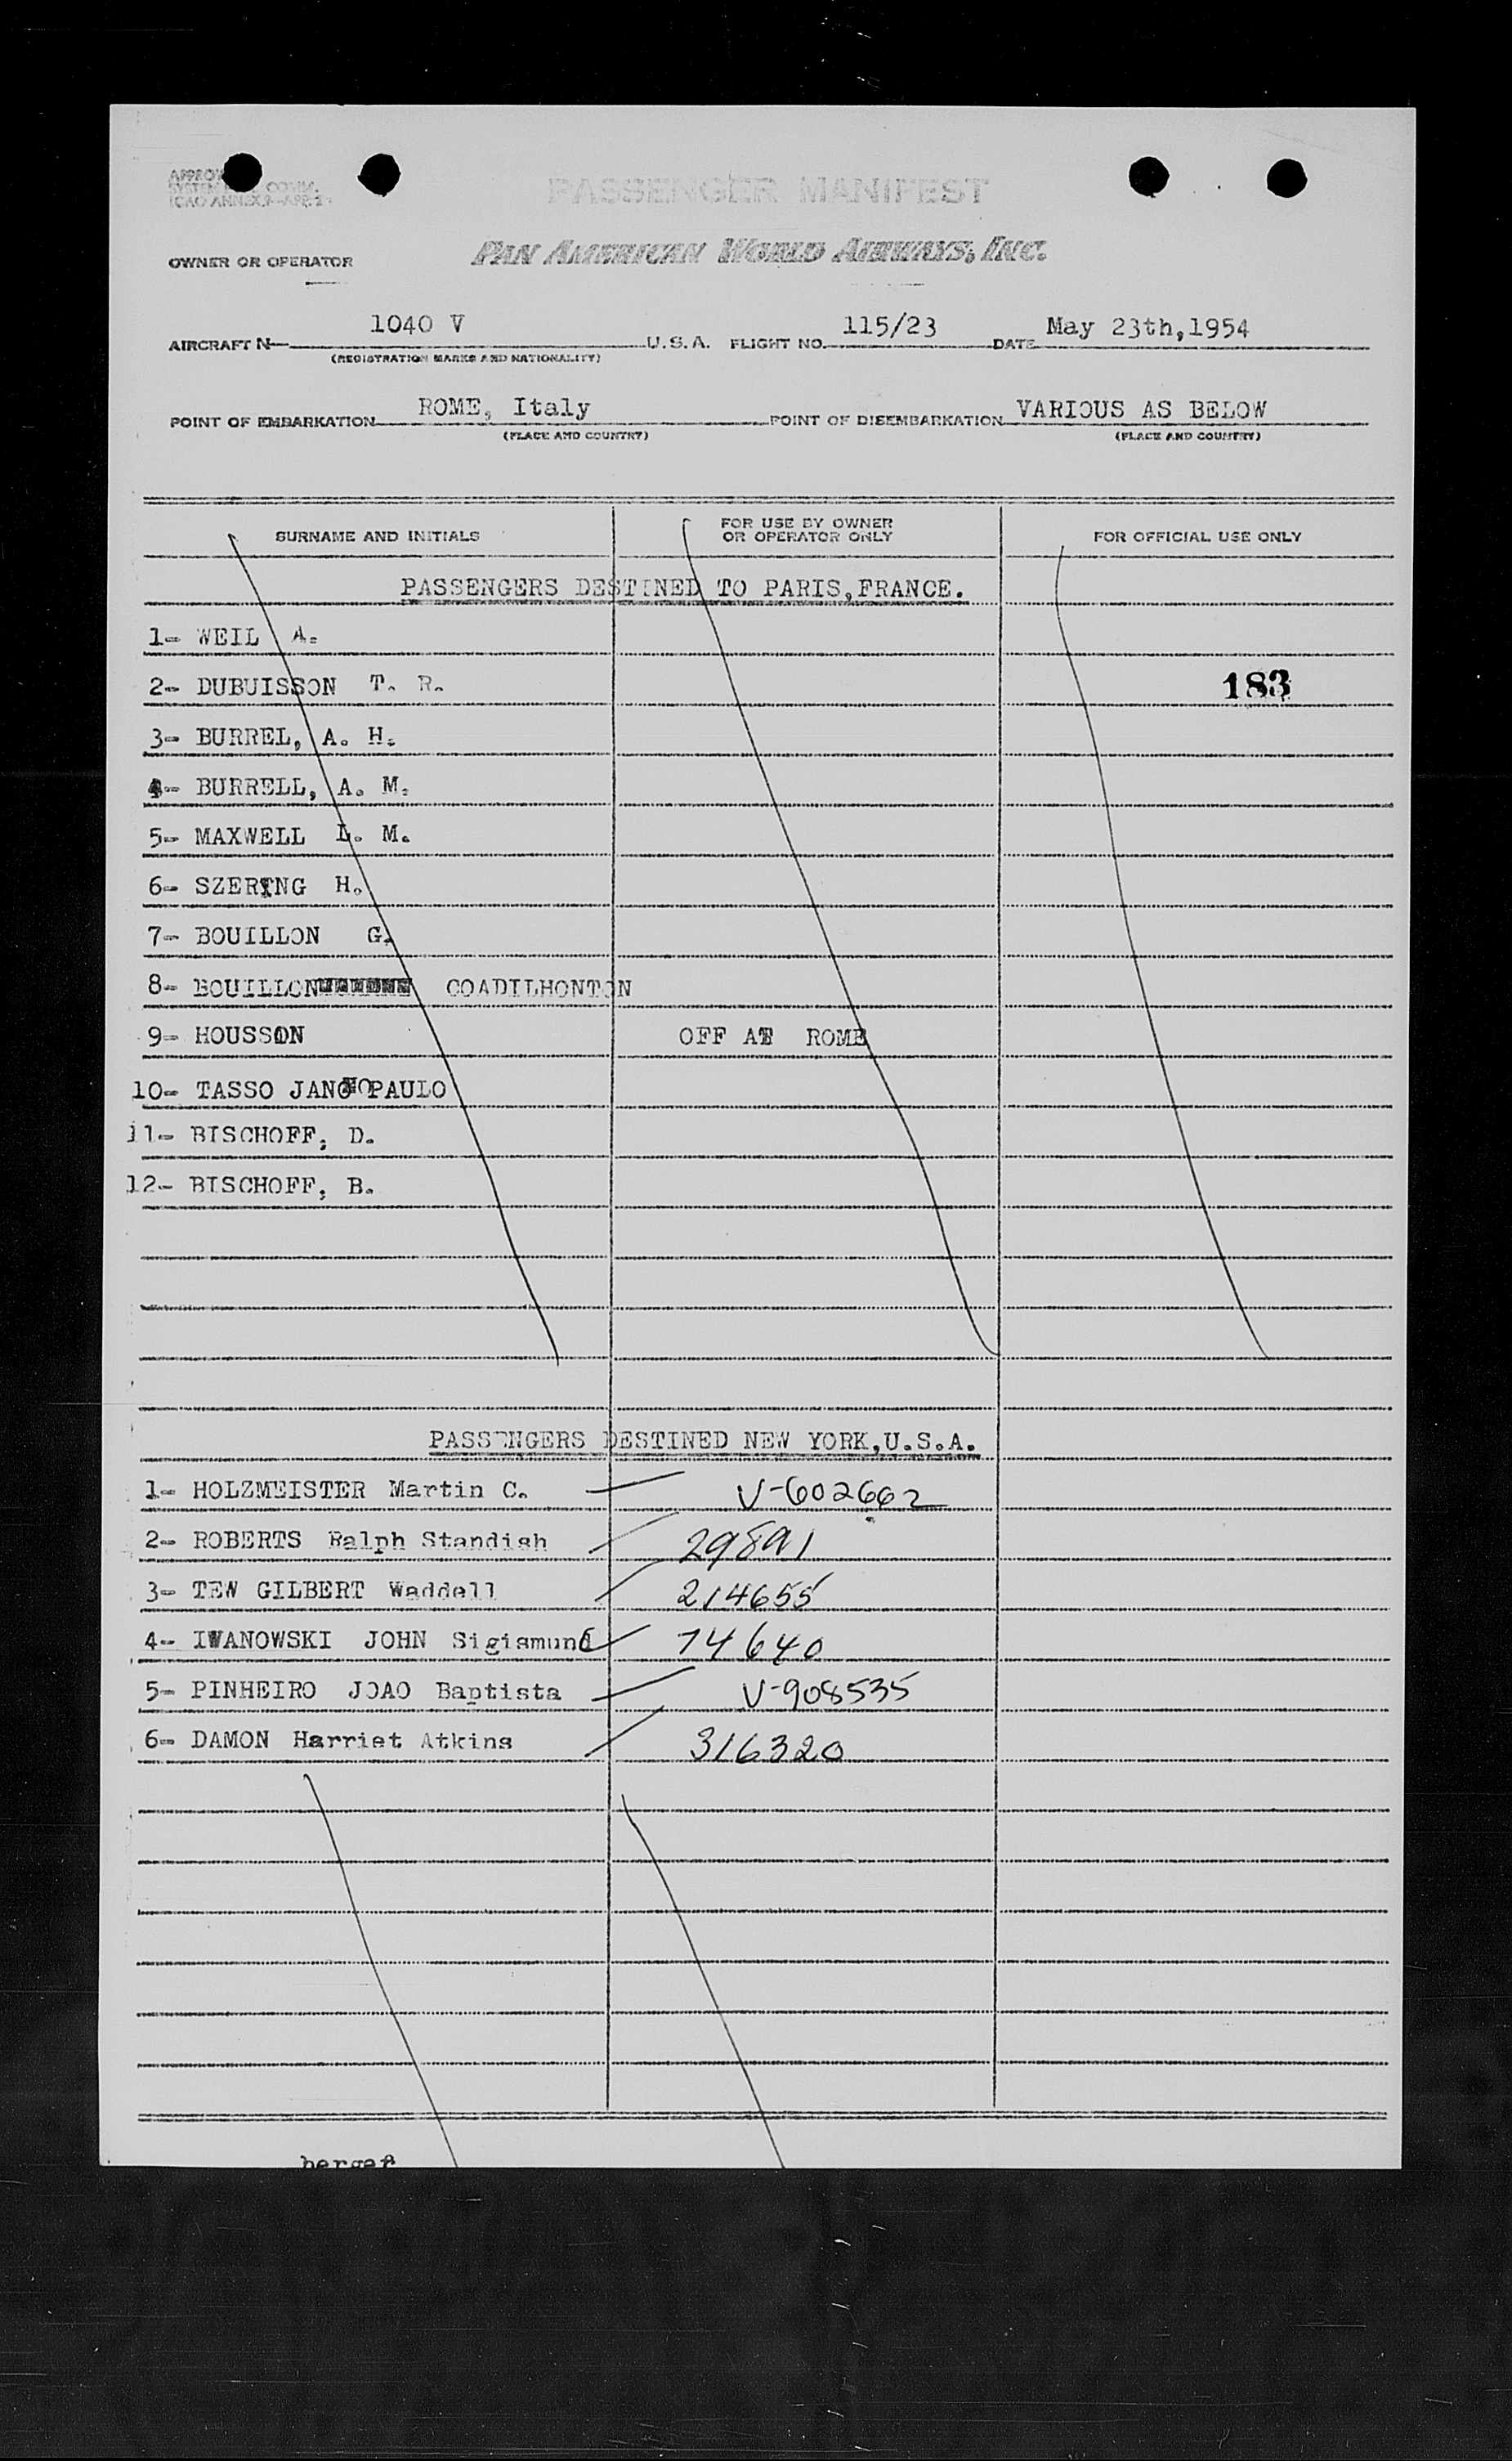 APPRO
SYSTEM COMM.
ICAO ANNEX 9-APP. 2
PASSENGER MANIFEST
OWNER OR OPERATOR PAN AMERICAN WORLD AIRWAYS, INC.
AIRCRAFT N— 1040 V U.S.A. FLIGHT NO. 115/23 DATE May 23th,1954
(REGISTRATION MARKS AND NATIONALITY)
POINT OF EMBARKATION ROME, Italy POINT OF DISEMBARKATION VARIOUS AS BELOW
(PLACE AND COUNTRY) (PLACE AND COUNTRY)
SURNAME AND INITIALS FOR USE BY OWNER OR OPERATOR ONLY FOR OFFICIAL USE ONLY
PASSENGERS DESTINED TO PARIS,FRANCE.
1- WEIL A.
2- DUBUISSON T. R. 183
3- BURREL, A. H.
4- BURRELL, A. M.
5- MAXWELL L. M.
6- SZERYNG H.
7- BOUILLON G.
8- BOUILLON COADILHONTON
9- HOUSSON OFF AT ROME
10- TASSO PAULO
11- BISCHOFF, D.
12- BISCHOFF, B.
PASSENGERS DESTINED NEW YORK,U.S.A.
1- HOLZMEISTER Martin C. V-602662
2- ROBERTS Ralph Standish 29891
3- TEW GILBERT Waddell 214655
4- IWANOWSKI JOHN Sigismund 74640
5- PINHEIRO JOAO Baptista V-908535
6- DAMON Harriet Atkins 316320